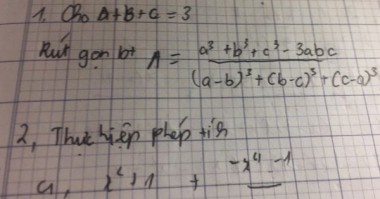 1. Cho A+B+C=3
Rút gọn bt A = a³+b³+c³-3abc / (a-b)³+(b-c)³+(c-a)³
2, Thực hiệp phép tíh
a, x²+1 + -x⁴-1